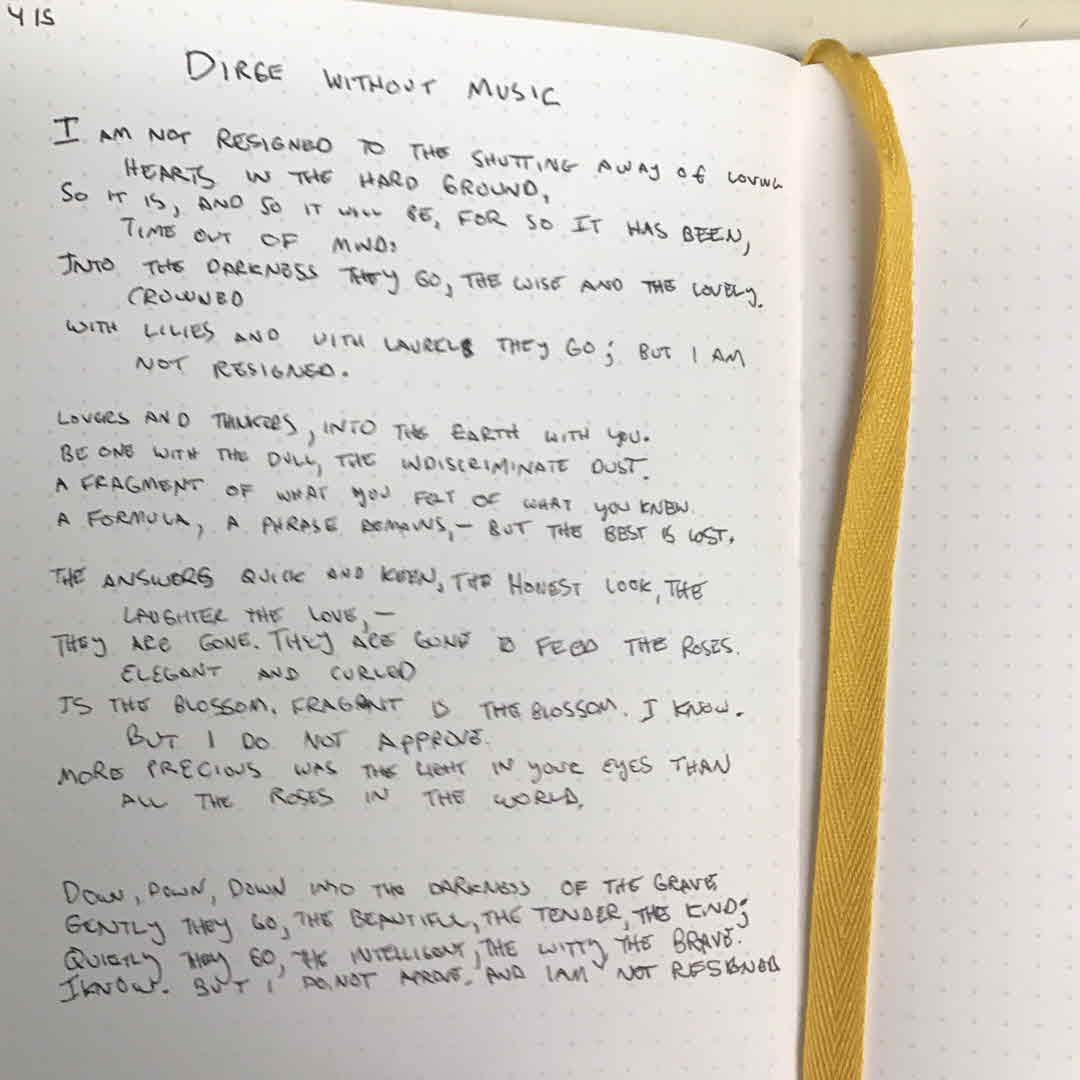 4 15
DIRGE WITHOUT MUSIC
I AM NOT RESIGNED TO THE SHUTTING AWAY OF LOVING
HEARTS IN THE HARD GROUND,
SO IT IS, AND SO IT WILL BE, FOR SO IT HAS BEEN,
TIME OUT OF MIND:
INTO THE DARKNESS THEY GO, THE WISE AND THE LOVELY.
CROWNED
WITH LILIES AND WITH LAURELS THEY GO; BUT I AM
NOT RESIGNED.
LOVERS AND THINKERS, INTO THE EARTH WITH YOU.
BE ONE WITH THE DULL, THE INDISCRIMINATE DUST.
A FRAGMENT OF WHAT YOU FELT OF WHAT YOU KNEW
A FORMULA, A PHRASE REMAINS, – BUT THE BEST IS LOST.
THE ANSWERS QUICK AND KEEN, THE HONEST LOOK, THE
LAUGHTER THE LOVE, –
THEY ARE GONE. THEY ARE GONE TO FEED THE ROSES.
ELEGANT AND CURLED
IS THE BLOSSOM. FRAGRANT IS THE BLOSSOM. I KNOW.
BUT I DO NOT APPROVE.
MORE PRECIOUS WAS THE LIGHT IN YOUR EYES THAN
ALL THE ROSES IN THE WORLD.
DOWN, DOWN, DOWN INTO THE DARKNESS OF THE GRAVE
GENTLY THEY GO, THE BEAUTIFUL, THE TENDER, THE KIND;
QUIETLY THEY GO, THE INTELLIGENT, THE WITTY, THE BRAVE.
I KNOW. BUT I DO NOT APROVE. AND I AM NOT RESIGNED